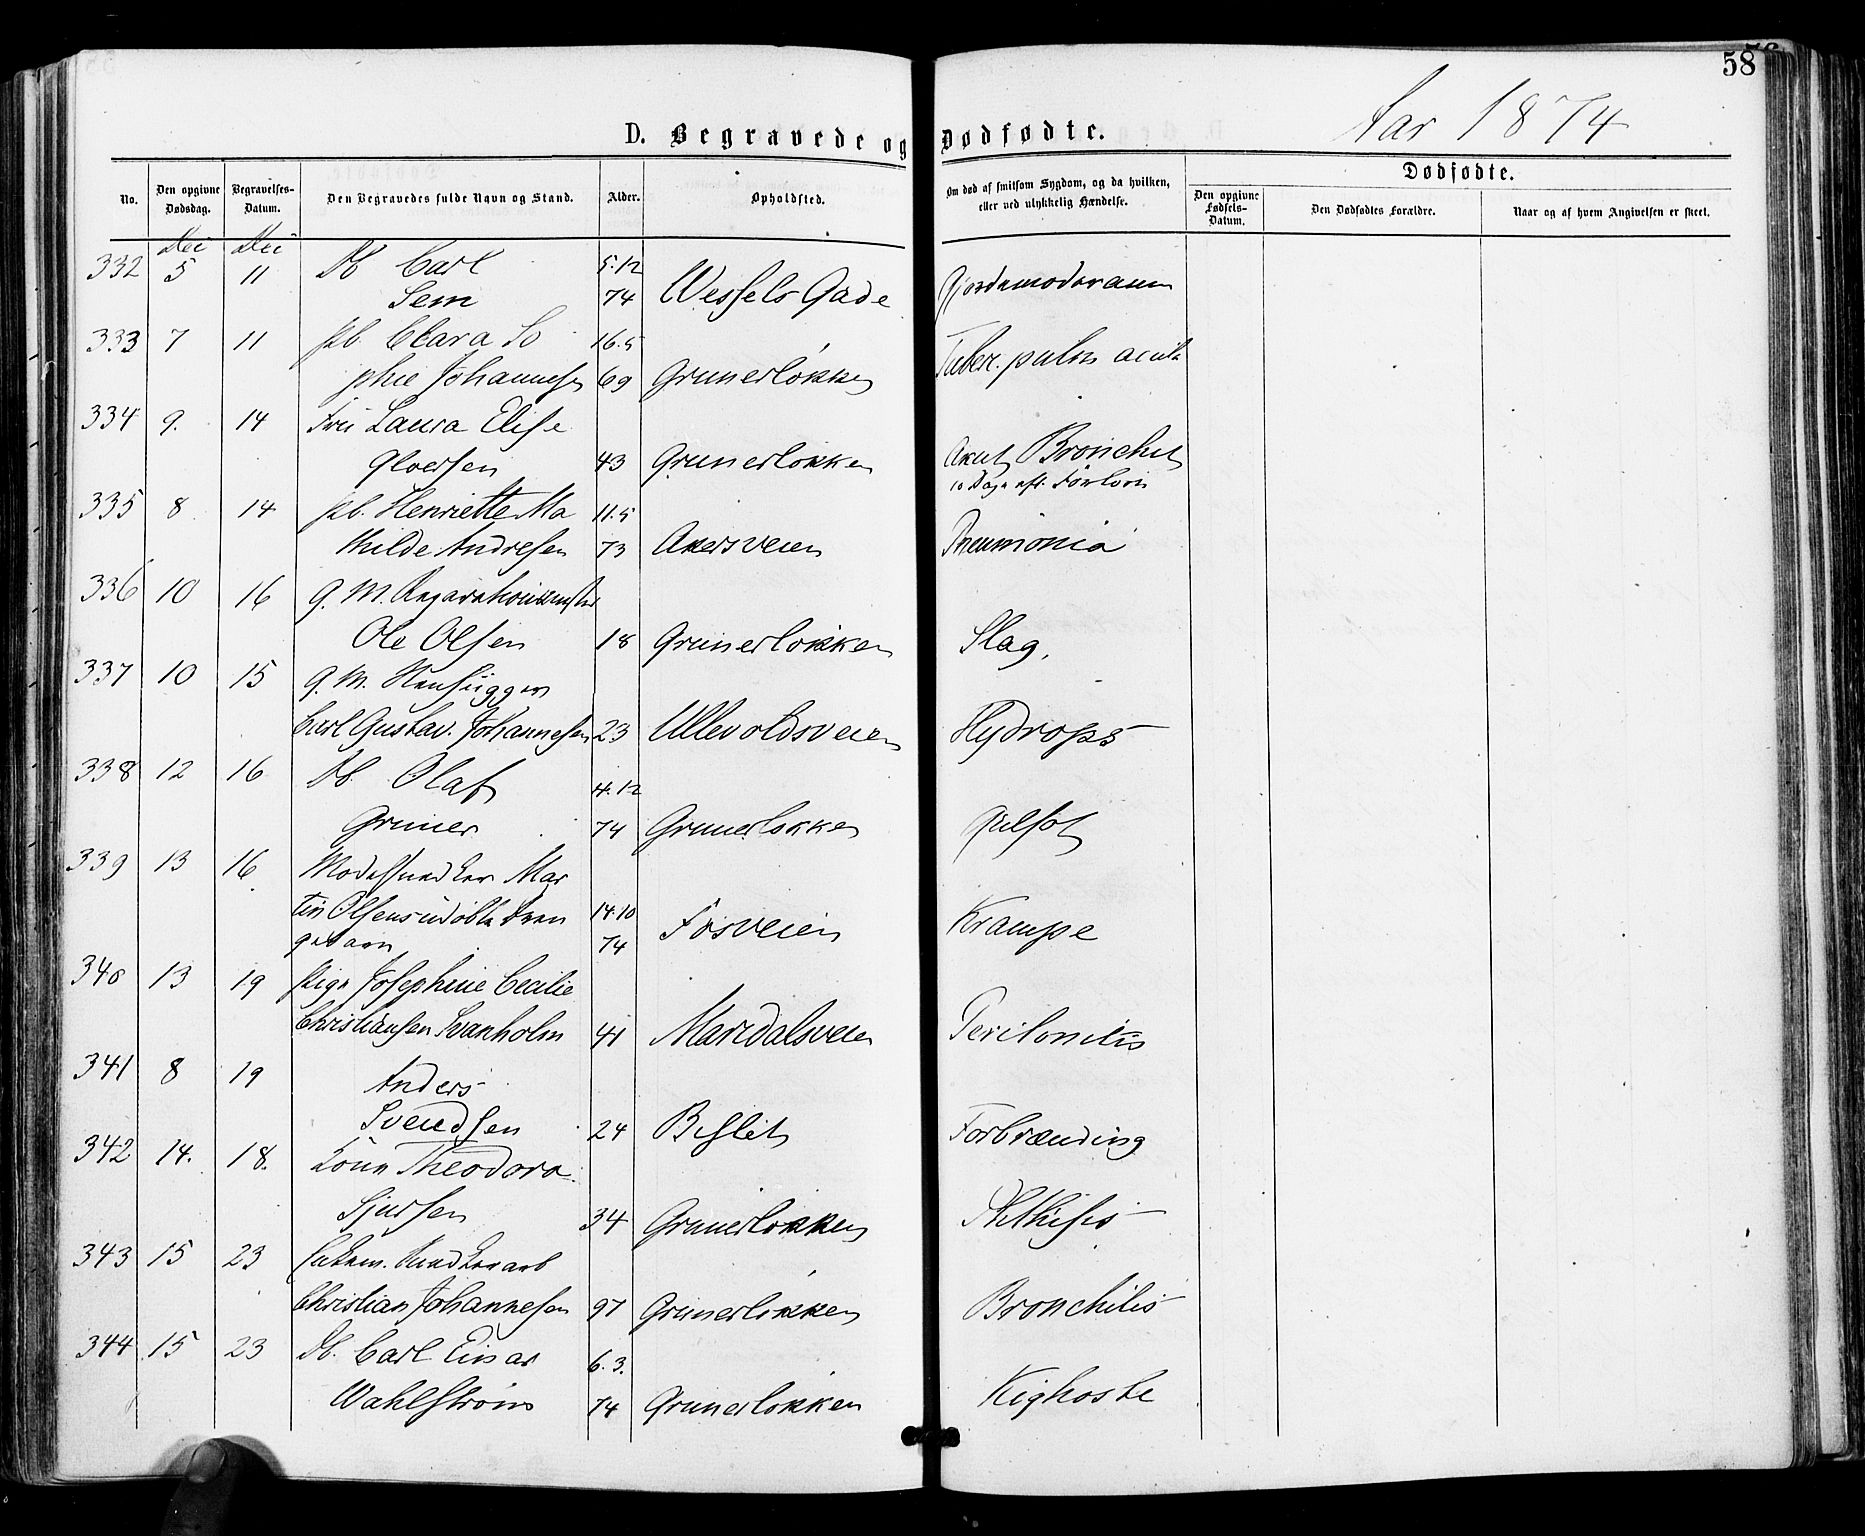 58
Aar 1874
D. Begravede og Dødfødte.
No. Den opgivne Dødsdag. Begravelses-Datum. Den Begravedes fulde Navn og Stand. Alder. Opholdsted. Om død af smitsom Sygdom, og da hvilken, eller ved ulykkelig Hændelse. Dødfødte.
Den opgivne Fødsels-Datum. Den Dødfødtes Forældre. Naar og af hvem Angivelsen er skeet.
Mai Mai
332 5 11 Db. Carl 5.12
Sem 74 Wessels Gade
333 7 11 Pb. Clara So 16.5
phie Johannesen 69 Grunerløkken Tuber. pulm acuta
334 9. 14 Fru Laura Elise
Gloersen 43 Grunerløkken Akut Bronchit
10 Dage eft.
335 8 14 Pb. Henriette Ma 11.5
thilde Andresen 73 Akersveien Pneumonia
336 10 16 G. M.
Ole Olsen 18 Grunerløkken Slag,
337 10 15 G. M.
Carl Gustav. Johannesen 23 Ullevoldsveien Hydrops
338 12 16 Db. Olaf 4.12
Gruner 74 Grunerløkken Gulsot
339 13 16 Modelsnedker Mar
tin Olsens udøbte Dren 14.10
gebarn 74 Fosveien Krampe
340 13 19 Pige Josephine Cecilie
Christiansen Svanholm 41 Maridalsveien Peritonitis
341 8 19 Anders
Svendsen 24 Bislet Forbrænding
342 14. 18. Kone Theodora
Sjursen 34 Grunerløkken Phthisis
343 15 23 Snedkerarb
Christian Johannesen 97 Grunerløkken Bronchitis
344 15 23 Db. Carl Einar 6.3.
Wahlstrøm 74 Grunerløkken Kighoste